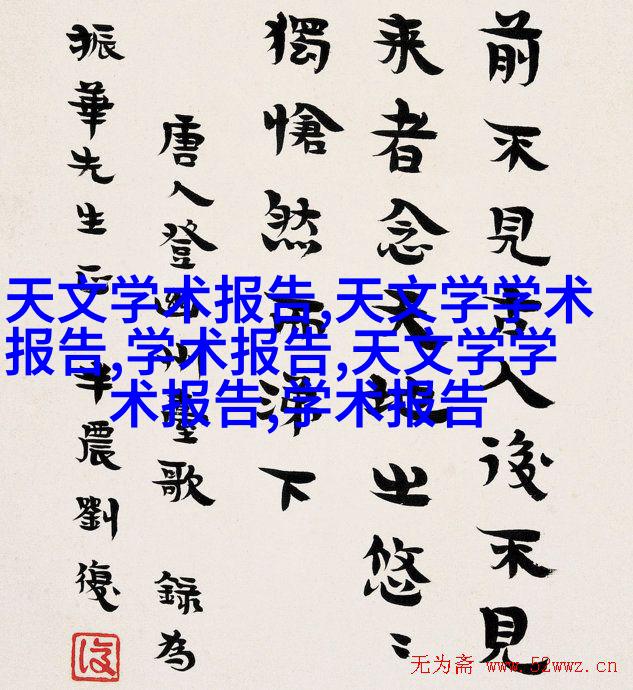 前不見古人後不見
来者念天地之悠〻
獨愴然而涕下
唐人登幽州臺歌 錄為
振華先生正 半農劉復
復
天文学术报告,天文学学术
报告,学术报告,天文学学
术报告,学术报告
无为斋 www.52wwz.cn